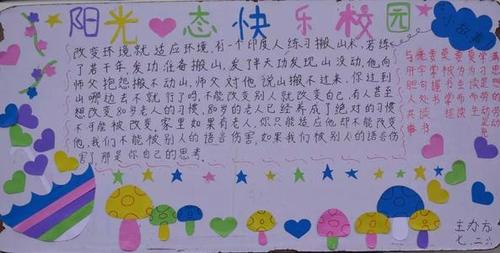 阳光心态快乐校园
改变环境就适应环境,有一个印度人练习搬山术,苦练
了若干年,发功准备搬山,发了半天功发现山没动,他向
师父抱怨搬不动山,师父对他说山搬不过来,你过到
山哪边去不就行了吗,不能改变别人就改变自己,有人甚至
想改变80岁老人的习惯,80岁的老人已经养成了绝对的习惯
不可能被改变,家里如果有老人你只能适应他却不能改变
他,我们不能被别人的语言伤害,如果我们被别人的语言伤
害了那是你自己的思考。
小故事
主办方
七.二